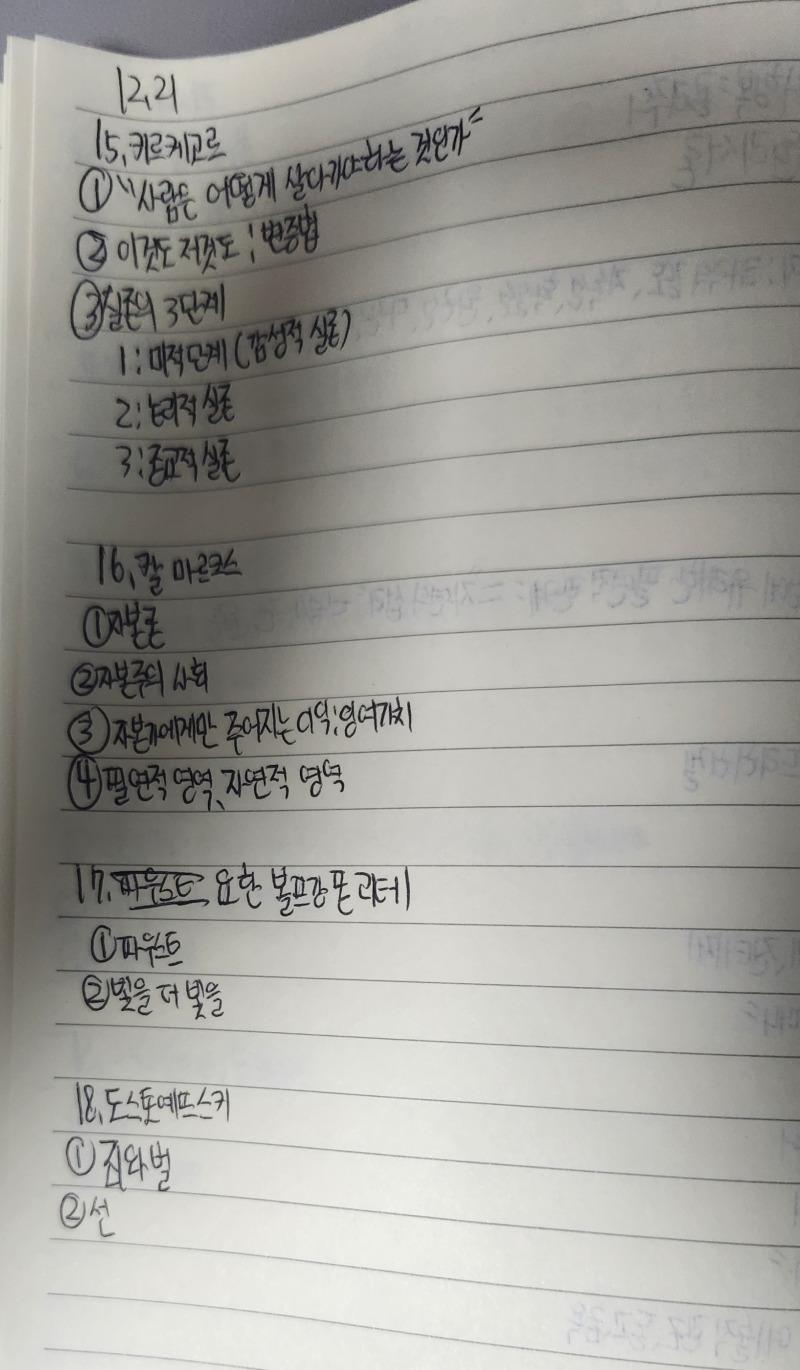 12.21
15. 키르케고르
① "사람은 어떻게 살다가야하는 것인가"
② 이것도 저것도 : 변증법
③ 실존의 3단계
1 : 미적단계 (감성적 실존)
2 : 논리적 실존
3 : 종교적 실존
16. 칼 마르크스
① 자본론
② 자본주의 사회
③ 자본가에게만 주어지는 이익 : 잉여가치
④ 필연적 영역, 자연적 영역
17. 파우스트 요한 볼프강 폰 괴테
① 파우스트
② 빛을 더 빛을
18. 도스토예프스키
① 죄와 벌
② 선